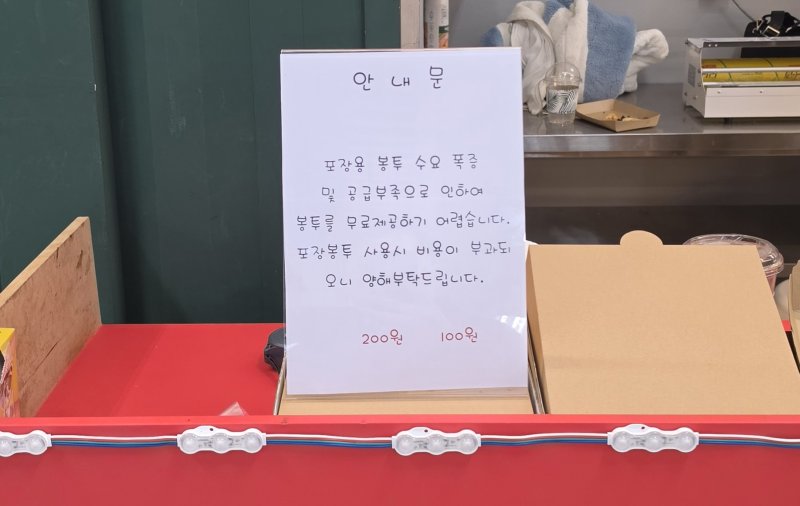 안내문
포장용 봉투 수요 폭증
및 공급부족으로 인하여
봉투를 무료제공하기 어렵습니다.
포장봉투 사용시 비용이 부과되
오니 양해부탁드립니다.
200원 100원